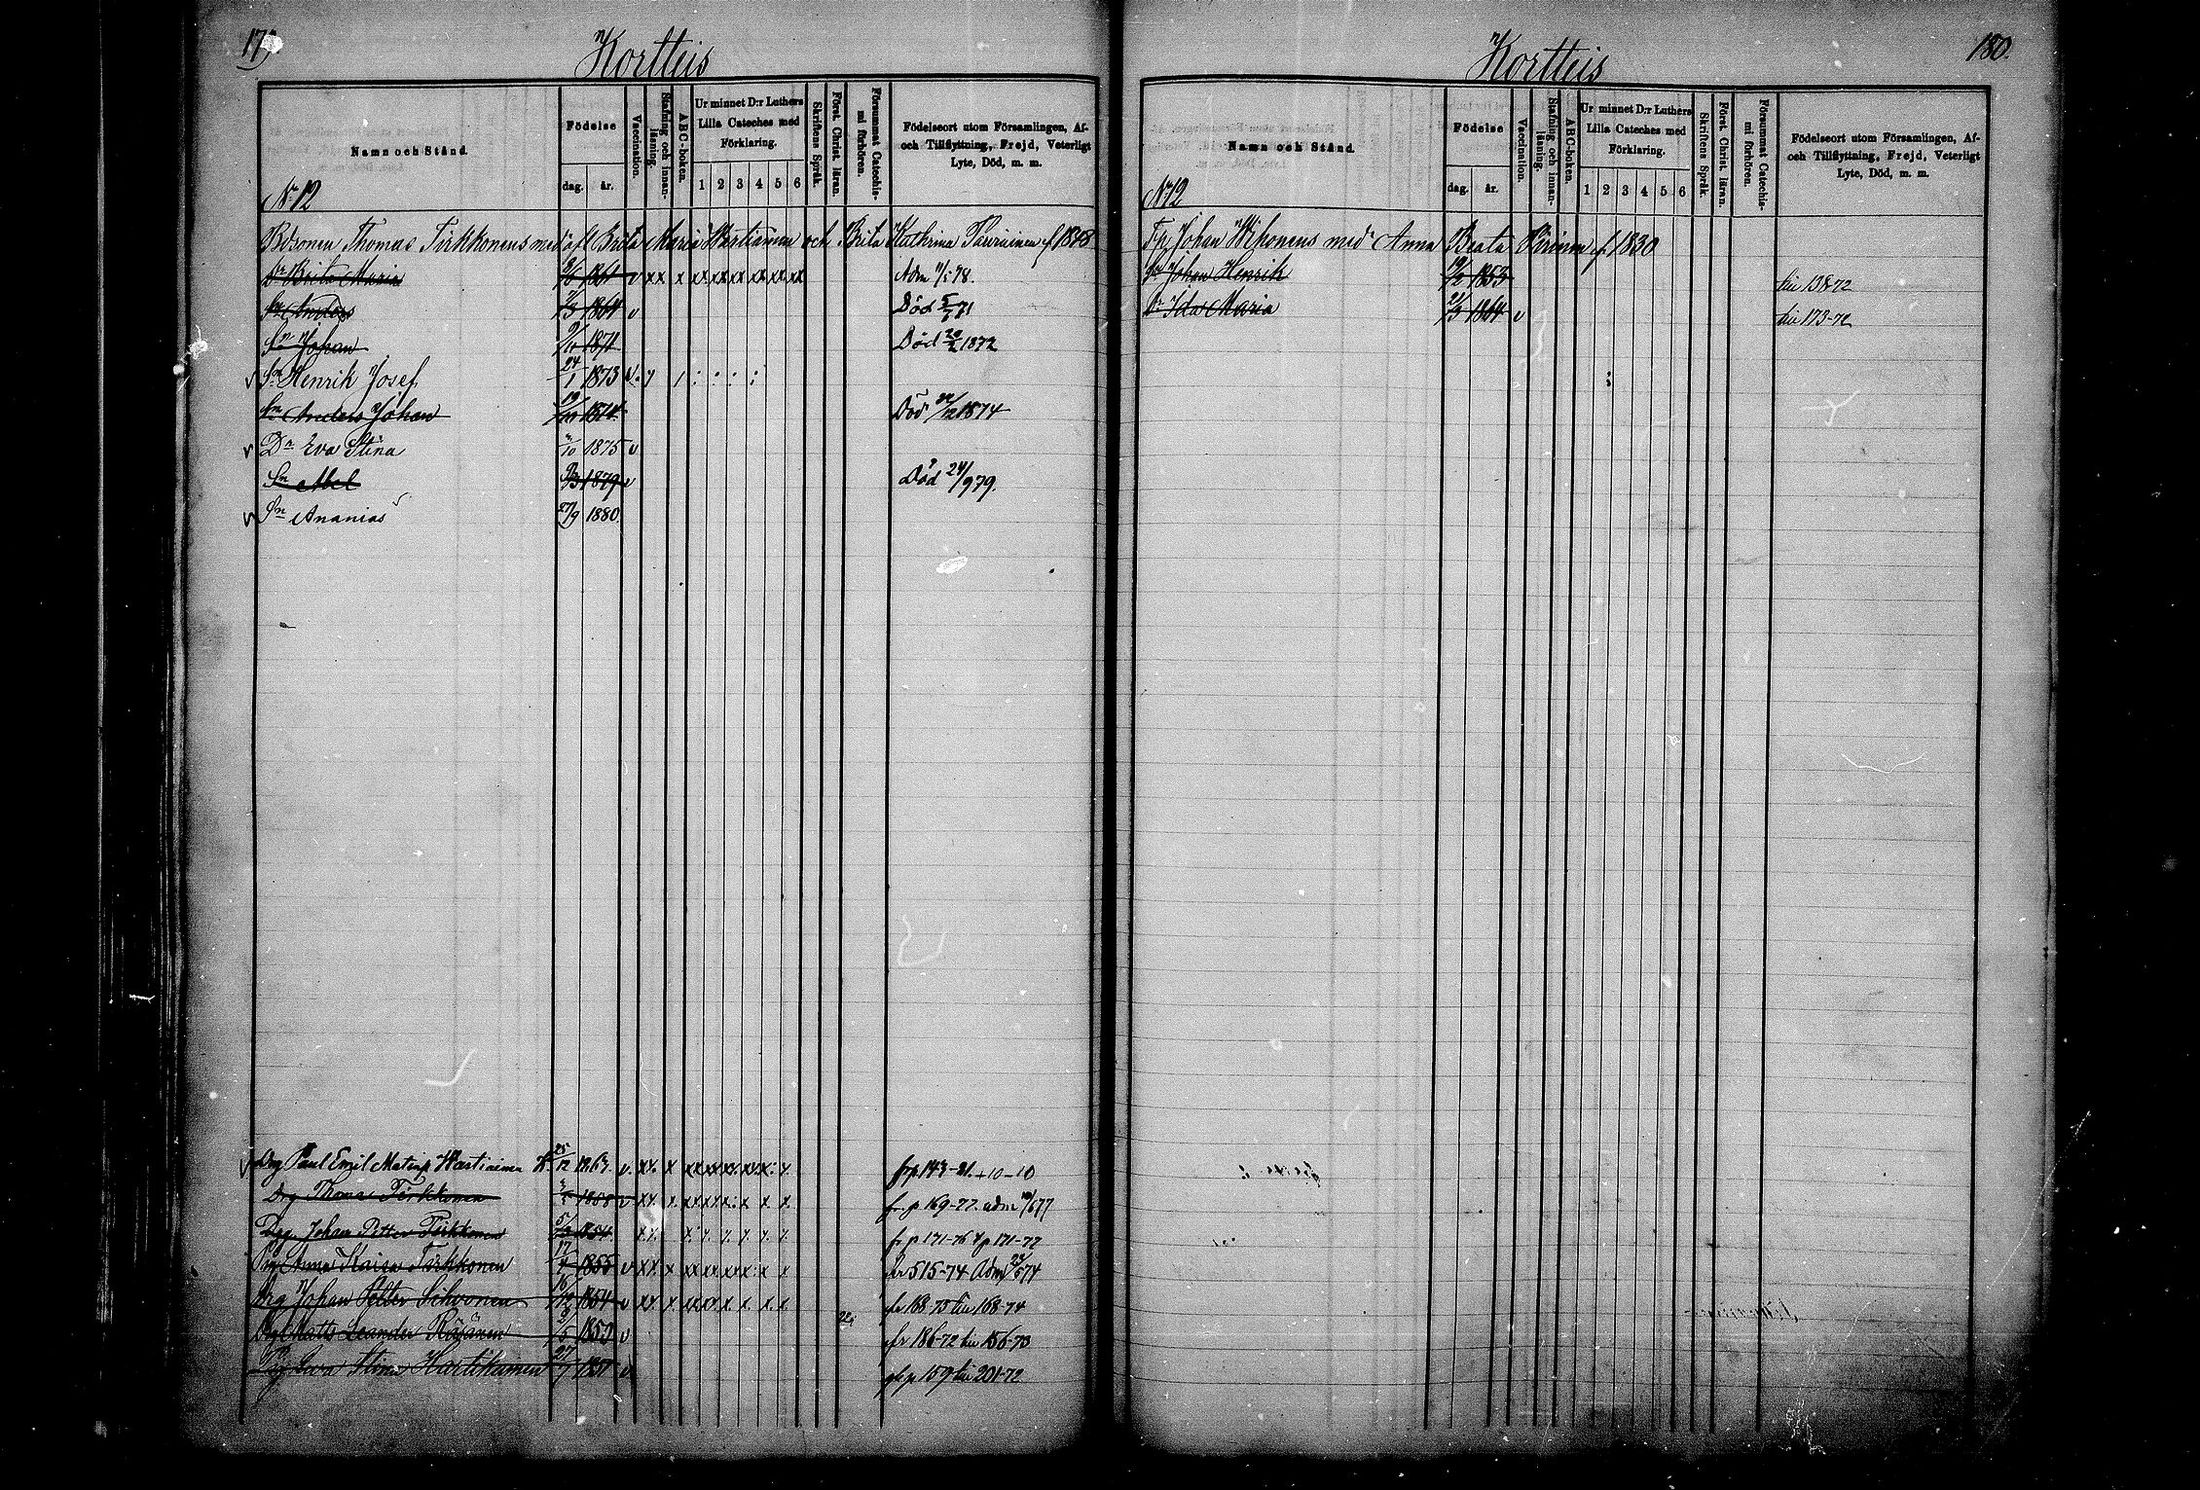 179
Kortteis
Namn och Stånd.
Födelse
dag.
år.
Vaccination.
Stafning och innan-läsning.
ABC-boken.
Ur minnet D:r Luthers
Lilla Cateches med
Förklaring.
1 2 3 4 5 6
Skriftens Språk.
Först. Christ. läran.
Försummat Catechis-mi förhören.
Födelseort utom Församlingen, Af-
och Tillflyttning, Frejd, Veterligt
Lyte, Död, m. m.
No 12
Bdsonen Thomas Tirkkonens med Brita Maria Hartiainen och Brita Kathrina f 1848
Dr Brita Maria 1861 v xx x xx xx xx xx xx xx Adm 78.
Sn Anders 1864 v Död 5/6 71
Sn Johan 9/10 1871 Död 1872
Sn Henrik Josef 24/1 1873 v
Sn Anders Johan 1874 Död 1874
Dn Eva Stina 1875 v
Sn Abel 1879 v Död 24/9 79.
Sn Ananias 27/9 1880.
Drg Paul Emil Hartiainen 25/12 1867. v. frp 143-81. +10-10
Drg Thomas Tirkkonen 1858 v fr p 169-77. adm
Drg Johan Petter Tirkkonen 1854 fr p 171-76 t p 171-77
Pig Anna Kaisa Tirkkonen 17/4 1855 v fr 515-74 Adm
Drg Johan Petter Sihvonen 16/12 1854 v fr 168-73 till 168-74
Drg Matts Leander Räsänen 1850 v fr 186-72 till 186-73
Pig Eva Stina Hartikainen 27/7 1851 v 159 till 201-72
180.
Kortteis
Namn och Stånd.
Födelse
dag.
år.
Vaccination.
Stafning och innan-läsning.
ABC-boken.
Ur minnet D:r Luthers
Lilla Cateches med
Förklaring.
1 2 3 4 5 6
Skriftens Språk.
Först. Christ. läran.
Försummat Catechis-mi förhören.
Födelseort utom Församlingen, Af-
och Tillflyttning, Frejd, Veterligt
Lyte, Död, m. m.
No 12
Johan Wihonens med Anna Beata f. 1830
Sn Johan Henrik 1853 till 138-72
Dr Ida Maria 21/3 1864 v till 173-72